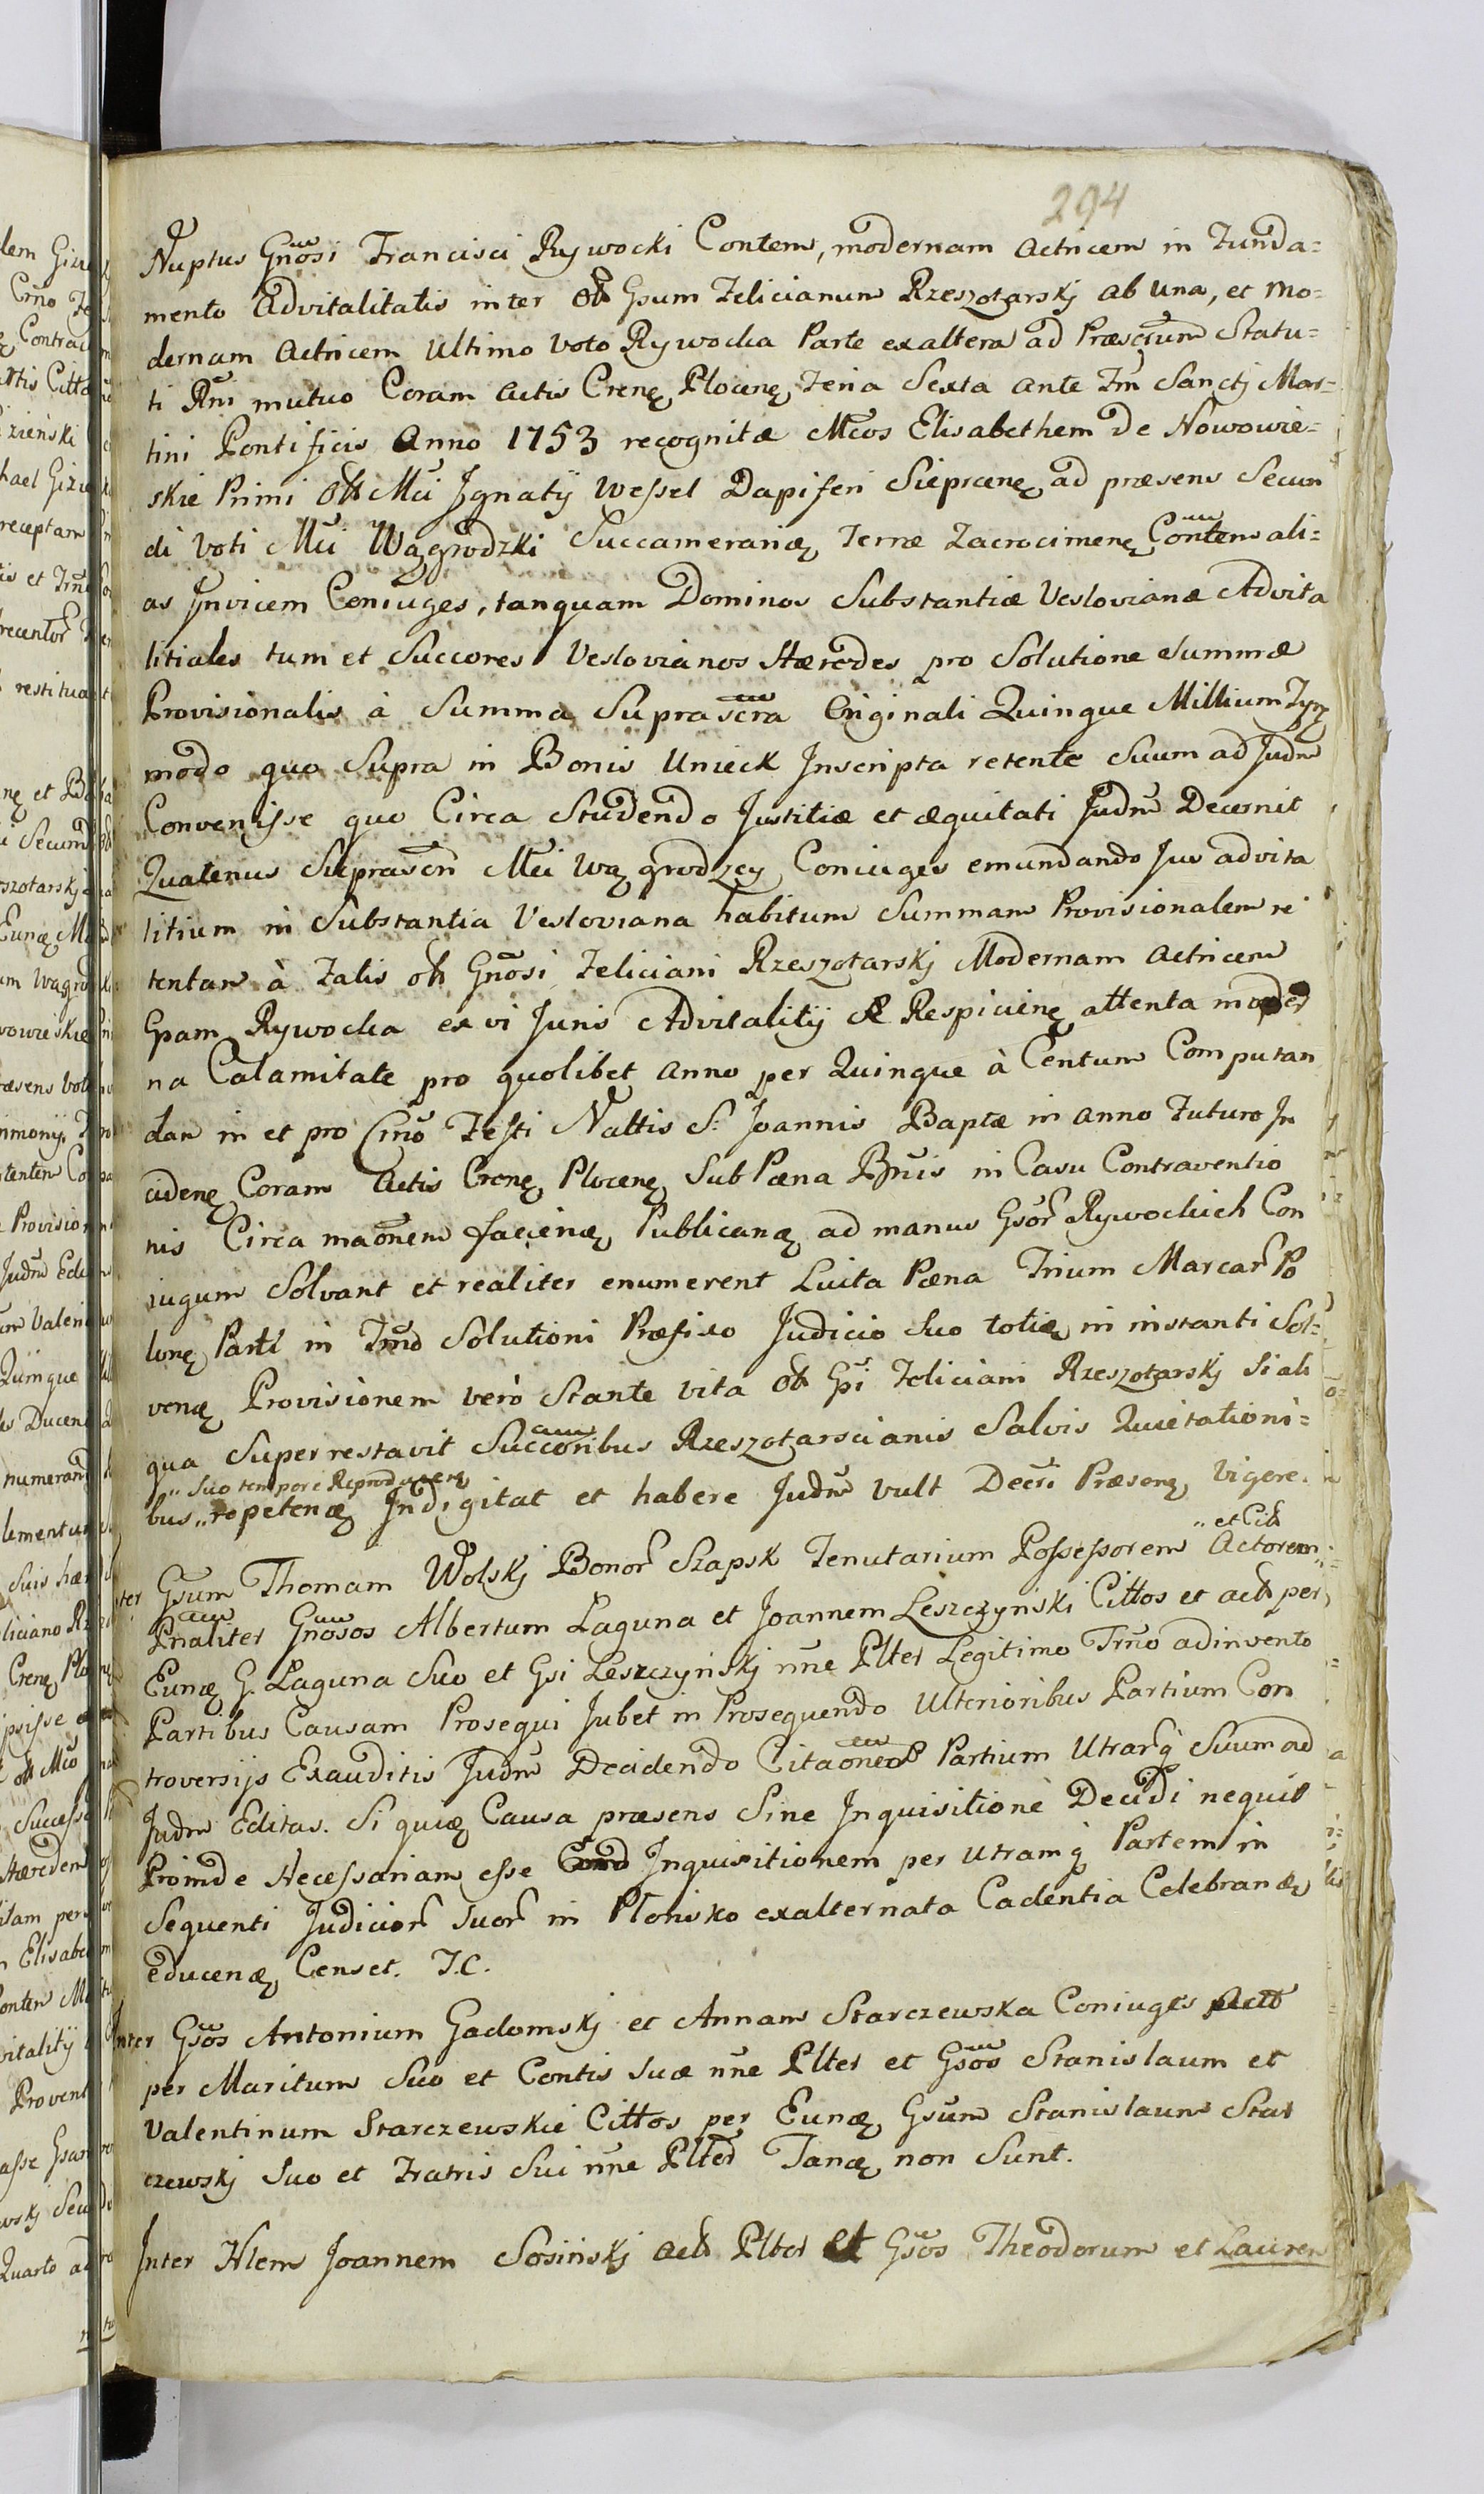 294
Nuptus Gnosi Francisci Rywocki Contem, modernam actricem in Funda=
mento Advitalitatis inter olt Gsum Felicianum Rzeszotarskj ab una, et mo=
dernam actricem ultimo voto Rywocka Parte ex altera ad Præscrum Statu=
ti Rni mutuo Coram actis Crenę Plocenę Feria Sexta ante Fm Sanctj Mar=
tini Pontificis Anno 1753 recognitæ Mcos Elisabethem de Nowowie=
skie Primi olt Mci Jgnatÿ Wessel Dapiferi Sieprcenę ad præsens Secun
di voti Mci Wągrodzki Succamerarię Terræ Zacrocimenę Contem ali=
as Jnvicem Coniuges, tanquam Dominos Substantiæ Veslovianæ Advita
litiales tum et Succores Veslovianos Hæredes pro Solutione Summæ
Provisionalis à Summa Suprascra Originali Quinque Millium Fpr
modo quo Supra in Bonis Unieck Jnscripta retentæ Suum ad Judm
Convenisse quo Circa Studendo Justitiæ et æquitati Judm Decernit
Quatenus Suprascri Mci Wągrodzcy Coniuges emundando Jus advita
litium in Substantia Vesloviana habitum Summam Provisionalem re
tentam à Fatis olt Gnosi Feliciani Rzeszotarskj Modernam actricem
Gsam Rywocka ex vi Juris Advitalitÿ Respicienę attenta moder
na Calamitate pro quolibet anno per Quinque à Centum Computan
dam in et pro Crno Festi Nattis S: Joannis Baptæ in anno Futuro Jn
cidenę Coram Actis Crenę Plocenę Sub Pæna Bnis in Casu Contraventio
nis Circa maonem facienę Publicanę ad manus Gsor Rywockich Con
iugum Solvant et realiter enumerent Luita Pæna Trium Marcar Po
lonę Parti in Trno Solutioni Præfixo Judicio Suo totię in instanti Sol=
venę Provisionem verò Stante vita olt Gsi Feliciani Rzeszotarskj Si ali
qua Superrestavit Succoribus Rzeszotarscianis Salvis Quietationi=
„ Suo tempore Reproducenę
bus „ repetenę Jndigitat et habere Judm vult Decri Præsenę Vigore.
„ et Cit
ter Gsum Thomam Wolskj Bonor Szapsk Tenutarium Possessorem Actorem „
Pnaliter Gnosos Albertum Laguna et Joannem Leszczynski Cittos et act per
Eunę G. Laguna Suo et Gsi Leszczynskj nne Plter Legitimo Trno adinvento
Partibus Causam Prosequi Jubet in Prosequendo Ulterioribus Partium Con
troversijs Exauditis Judm Decidendo Citaones Partium Utrarq Suum ad
Judm Editas. Si quię Causa præsens Sine Jnquisitione Decidi nequit
Proinde Necessariam esse Jnquisitionem per utramq Partem in
Sequenti Judicior Suor in Plonsko exalternata Cadentia Celebranę
educenę Censet. J.C.
Jnter Gsos Antonium Gadomskj et Annam Starczewska Coniuges act
per Maritum Suo et Contis Suæ nne Plter et Gsos Stanislaum et
Valentinum Starczewskie Cittos per Eunę Gsum Stanislaum Star
czewskj Suo et Fratris Sui nne Plter Tanę non Sunt.
Jnter Hlem Joannem Sosinskj act Plter et Gsos Theodorum et Lauren